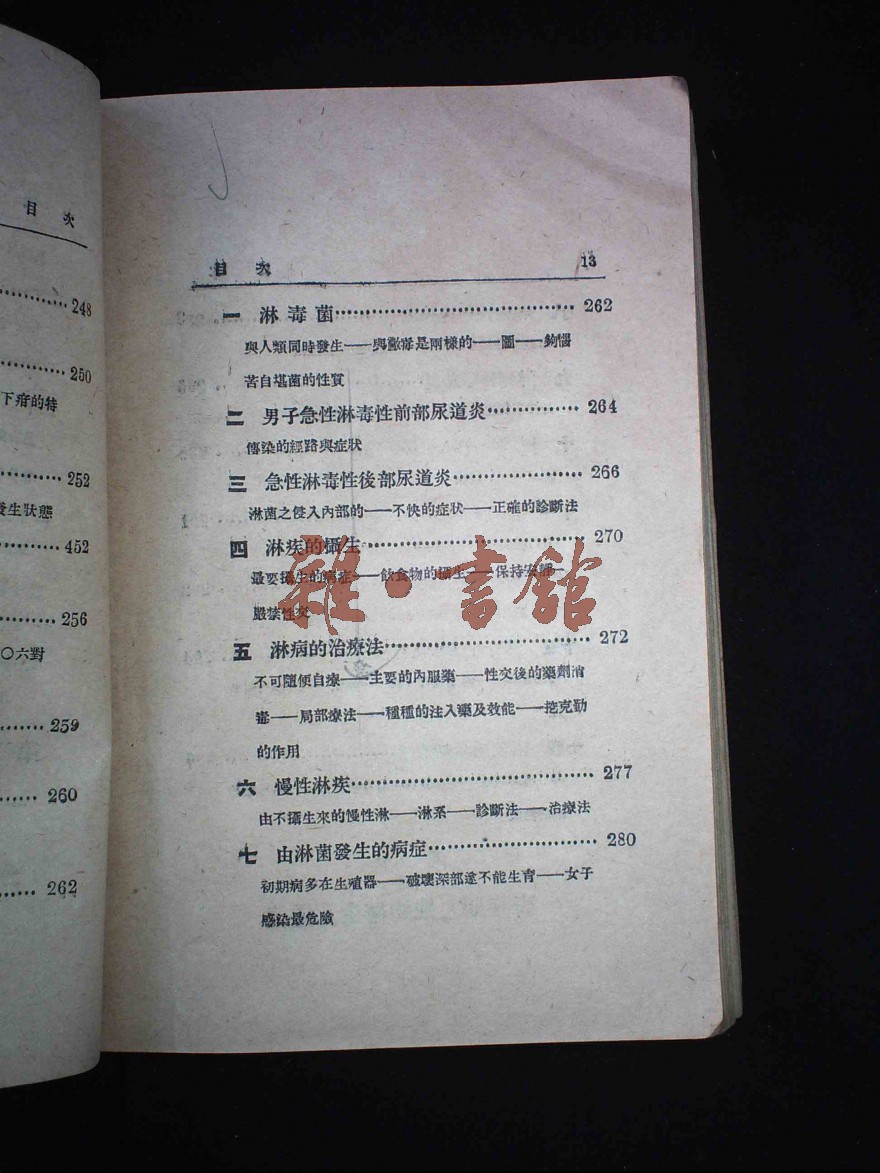 目 次
248
250
下疳的特
252
發生狀態
452
256
〇六對
259
260
262
目 次 13
一 淋毒菌 262
與人類同時發生——與黴毒是兩樣的——圖——鉤
苦自堪菌的性質
二 男子急性淋毒性前部尿道炎 264
傳染的經路與症狀
三 急性淋毒性後部尿道炎 266
淋菌之侵入內部的——不快的症狀——正確的診斷法
四 淋疾的攝生 270
最要攝生的病症——飲食物的攝生——保持安靜—
嚴禁性交
五 淋病的治療法 272
不可隨便自療——主要的內服藥——性交後的藥劑消
毒——局部療法——種種的注入藥及效能——挖克勒
的作用
六 慢性淋疾 277
由不攝生來的慢性淋——淋系——診斷法——治療法
七 由淋菌發生的病症 280
初期病多在生殖器——破壞深部遂不能生育——女子
感染最危險
雜·書館